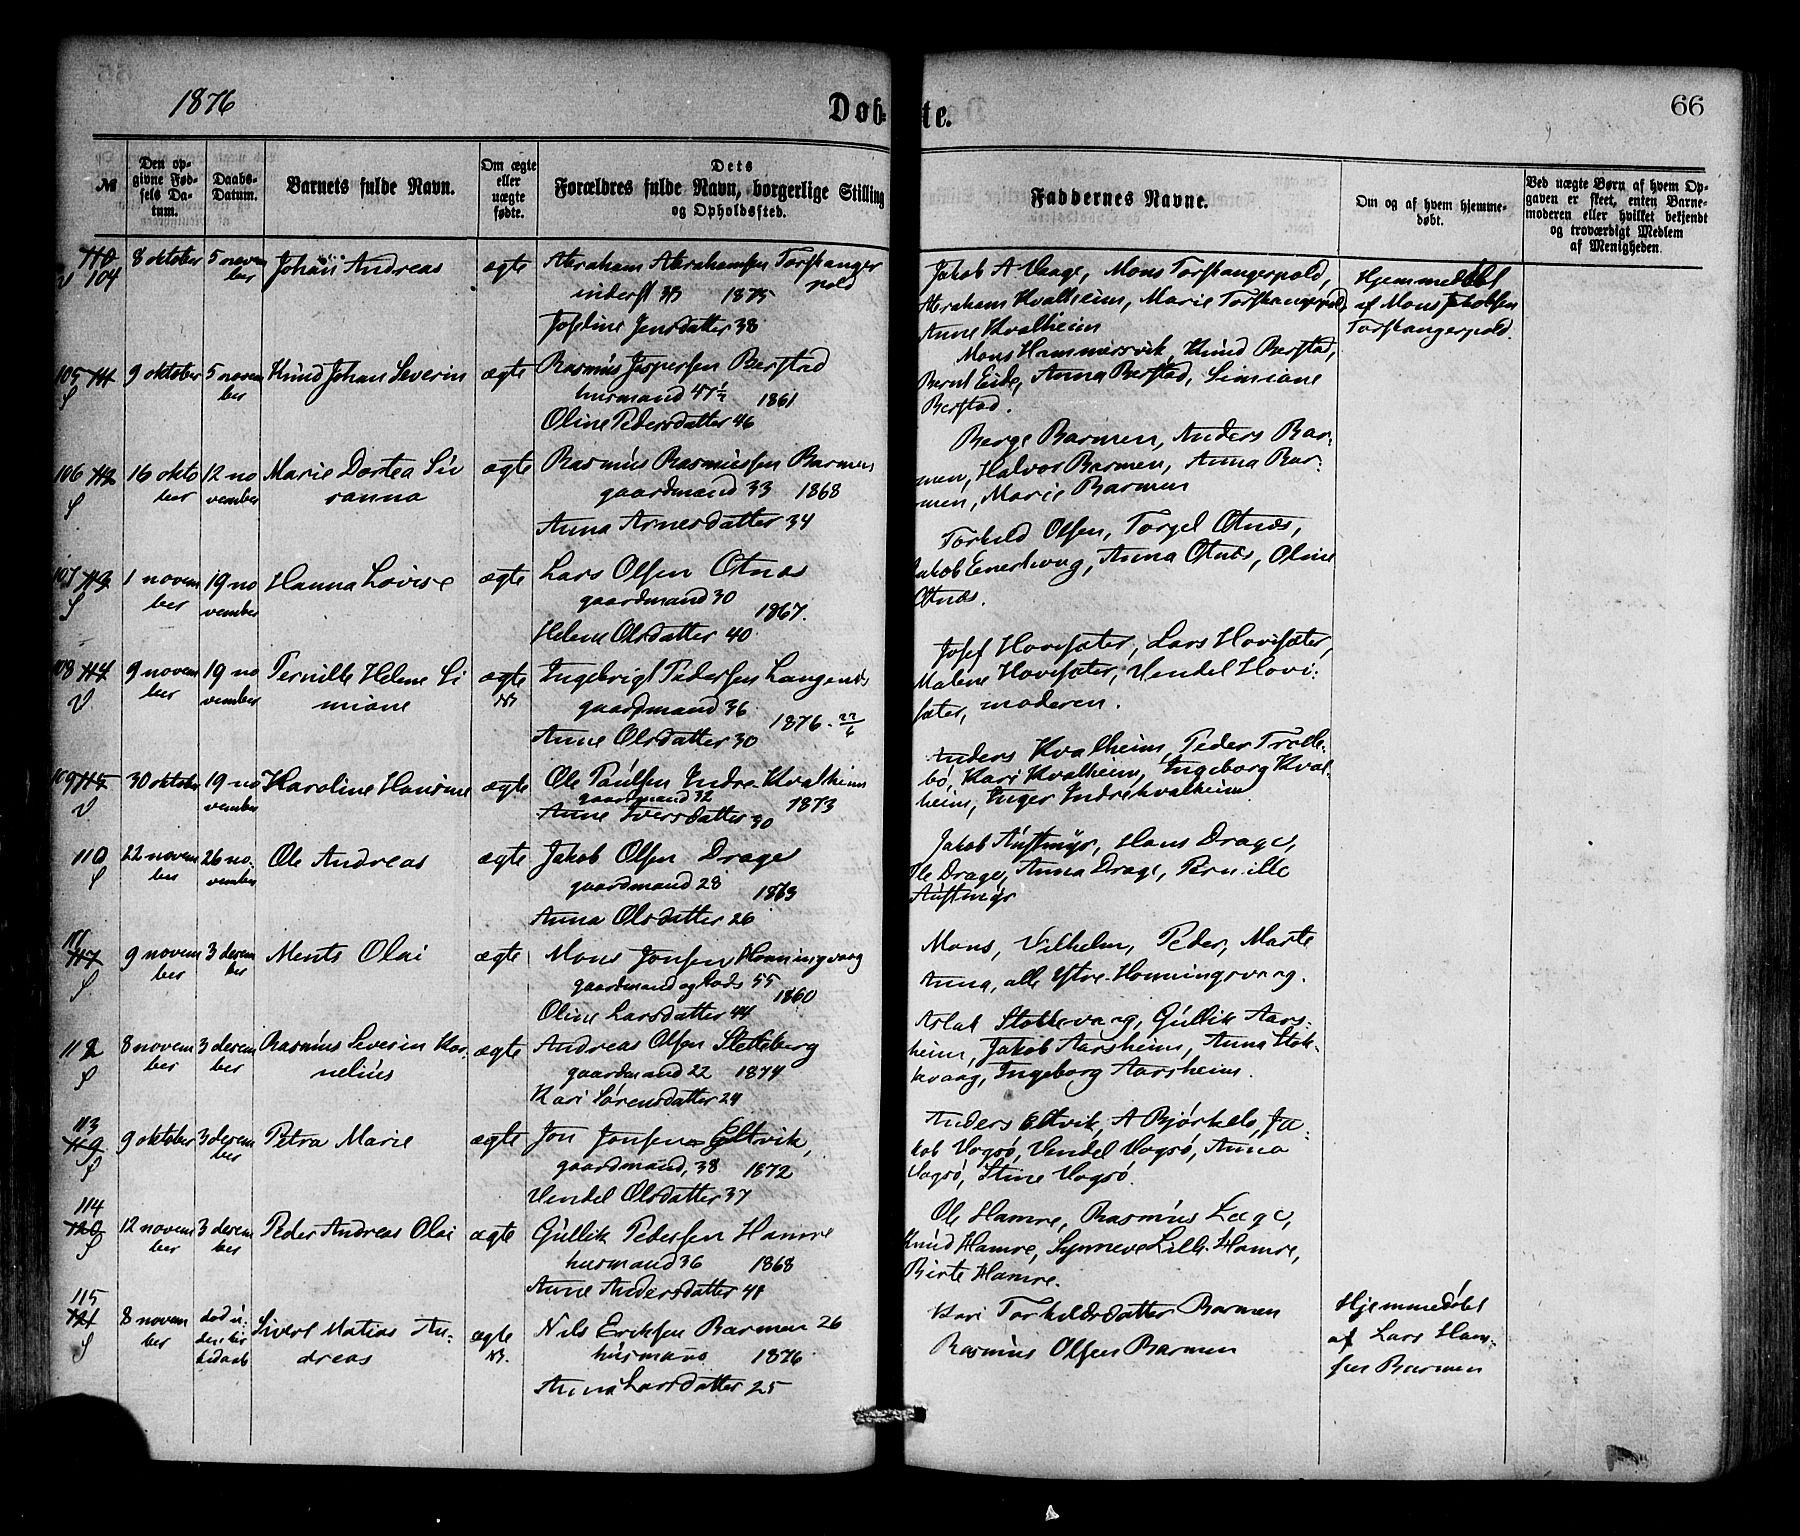 1876
Døb-
te.
66
№
Den op-
givne Fød-
sels Da-
tum.
Daabs-
Datum.
Barnets fulde Navn.
Om ægte
eller
uægte
fødte.
Dets
Forældres fulde Navn, borgerlige Stilling
og Opholdssted.
Faddernes Navne.
Om og af hvem hjemme-
døbt.
Ved uægte Børn af hvem Op-
gaven er skeet, enten Barne-
moderen eller hvilket bekjendt
og troværdigt Medlem
af Menigheden.
110
V 104
8 oktober
5 novem
ber
Johan Andreas
ægte
Abraham Abrahamsen Torskanger
pold
inderst 1875
Josefine Jensdatter 38
Jakob A Vaage, Mons Torskangerpold,
Abraham Kvalheim, Marie Torskangerpold
Anne Kvalheim
Hjemmedøbt
af Mons Jakobsen
Torskangerpold.
105 111
S
9 oktober
5 novem
ber
Knud Johan Severin
ægte
Rasmus Jespersen Berstad
husmand 47½ 1861
Oline Pedersdatter 46
Mons Hammersvik, Knud Berstad,
Bernt Eide, Anna Berstad, Simiane
Berstad.
106 112
S
16 okto
ber
12 no
vember
Marie Dortea Siv
ranna
ægte
Rasmus Rasmussen Barmen
gaardmand 33 1868
Anna Arnesdatter 34
Berge Barmen, Anders Bar-
men, Halvor Barmen, Anna Bar-
men, Marie Barmen
107 113
S
1 novem
ber
19 no
vember
Hanna Lovise
ægte
Lars Olsen Otnæs
gaardmand 30
1867.
Helene Olsdatter 40
Torkild Olsen, Torgel Otnæs,
Jakob Enerhaug, Anna Otnæs, Oline
Otnæs.
108 114
V
9 novem
ber
19 no
vember
Pernille Helene Si
miane
ægte
NB
Ingebrigt Pedersen Langenæs
gaardmand 36
1876. 22/6
Anne Olsdatter 30
Josef Hovisæter, Lars Hovisæter,
Malene Hovisæter, Vendel Hovi-
sæter, moderen.
109 115
V
30 oktober
19 no
vember
Karoline Hansine
ægte
Ole Paulsen Indre Kvalheim
gaardmand 32
1873
Anne Iversdatter 30
Anders Kvalheim, Peder Trolle-
bø, Kari Kvalheim, Ingeborg Kval-
heim, Inger Indrekvalheim
110
S
22 novem
ber
26 no-
vember
Ole Andreas
ægte
Jakob Olsen Drage
gaardmand 28
1873
Anna Olsdatter 26
Jakob Austmyr, Hans Drage,
Ole Drage, Anna Drage, Pernille
Austmyr
111
117
S
9 novem
ber
3 decem
ber
Ments Olai
ægte
Mons Jonsen Honningvaag
gaardmand og lods 55
1860
Oline Larsdatter 44
Mons, Vilhelm, Peder, Marte
Anna, alle Ytre-Honningsvaag.
112
S
8 novem
ber
3 decem
ber
Rasmus Severin Kor-
nelius
ægte
Andreas Olsen Sletteberg
gaardmand 22 1874
Kari Sørensdatter 24
Aslak Stokkevaag, Gullik Aars-
heim, Jakob Aarsheim, Anna Stok-
kvaag, Ingeborg Aarsheim.
113
119
S
9 oktober
3 decem
ber
Petra Marie
ægte
Jon Jonsen Eltvik,
gaardmand, 38 1872
Vendel Olsdatter 37
Anders Eltvik, A Bjørkelo, Ja-
kob Vogsø, Vendel Vogsø, Anna
Vogsø, Stine Vogsø.
114
120
S
12 novem
ber
3 decem
ber
Peder Andreas Olai
ægte
Gullik Pedersen Hamre
husmand 36 1868
Anne Andersdatter 41
Ole Hamre, Rasmus Lege,
Knud Hamre, Synneve Lill-Hamre,
Birte Hamre.
115
121
S
8 novem
ber
død u-
den kir
kedaab
Sivert Matias An-
dreas
ægte
NB.
Nils Eriksen Barmen 26
husmand 1876
Anna Larsdatter 25
Kari Torkildsdatter Barmen
Rasmus Olsen Barmen
Hjemmedøbt
af Lars Han-
sen Barmen